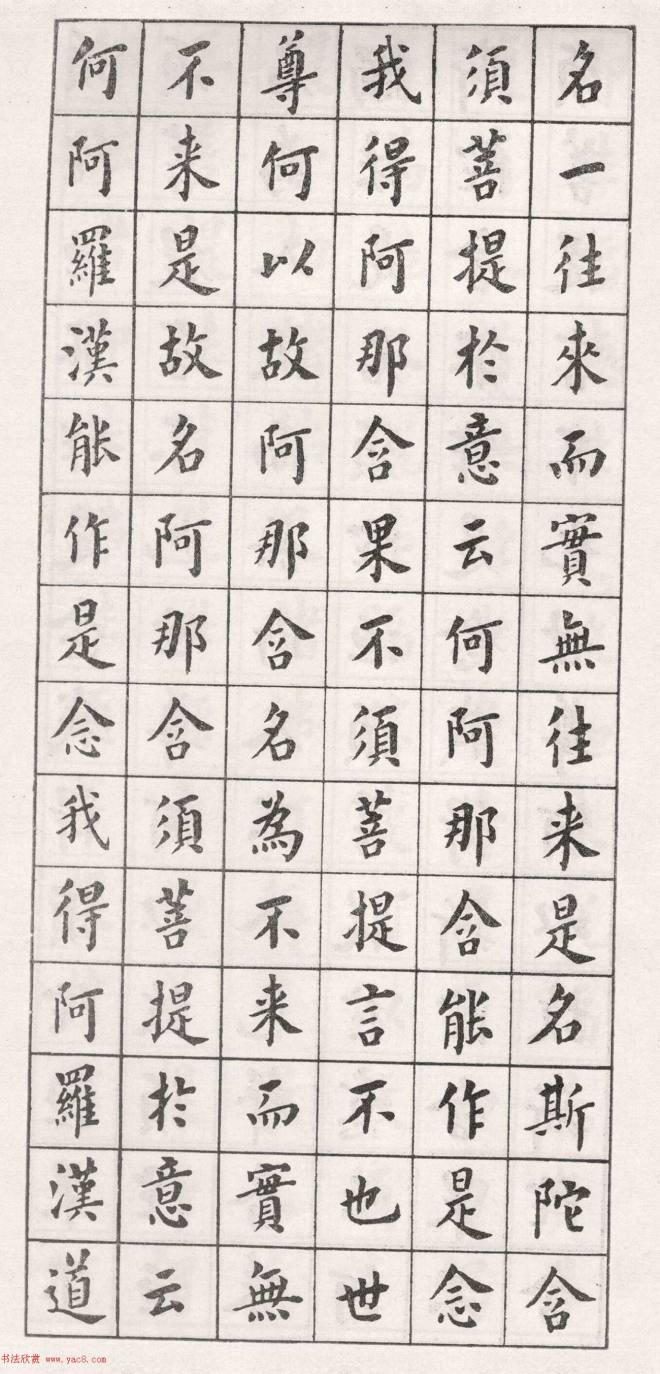 名一往來而實無往来是名斯陀含
須菩提於意云何阿那含能作是念
我得阿那含果不須菩提言不也世
尊何以故阿那含名為不来而實無
不来是故名阿那含須菩提於意云
何阿羅漢能作是念我得阿羅漢道
书法欣赏 www.yac8.com